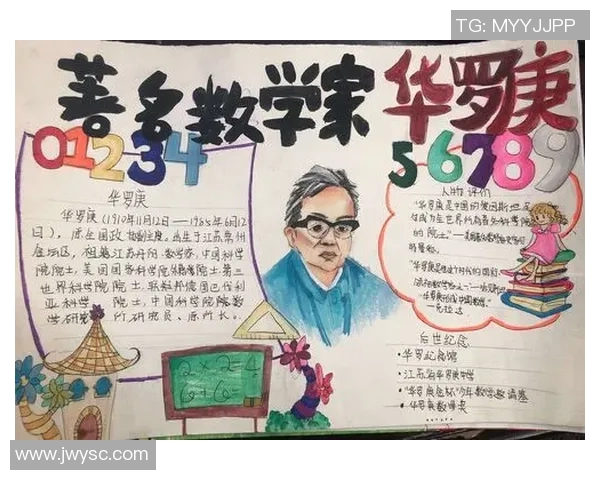 TG: MYYJJPP
著名数学家 华罗庚
01234
56789
华罗庚
华罗庚(1910年11月12日——1985年6月12
日),原全国政协副主席。出生于江苏常州
金坛区,祖籍江苏丹阳。数学家,中国科学
院院士,美国国家科学院外籍院士,第三
世界科学院院士,联邦德国巴伐利
亚科学院院士,中国科学院数
学研究所研究员、原所长。
人物评价
"华罗庚是中国的爱因斯坦,足
够成为全世界所有著名科学院
的院士。"
后世纪念
·华罗庚纪念馆
·江苏省华罗庚中学
·"华罗庚金杯"少年数学邀请赛
·华罗庚数学奖
2×2=4
6+6=
www.jwysc.com